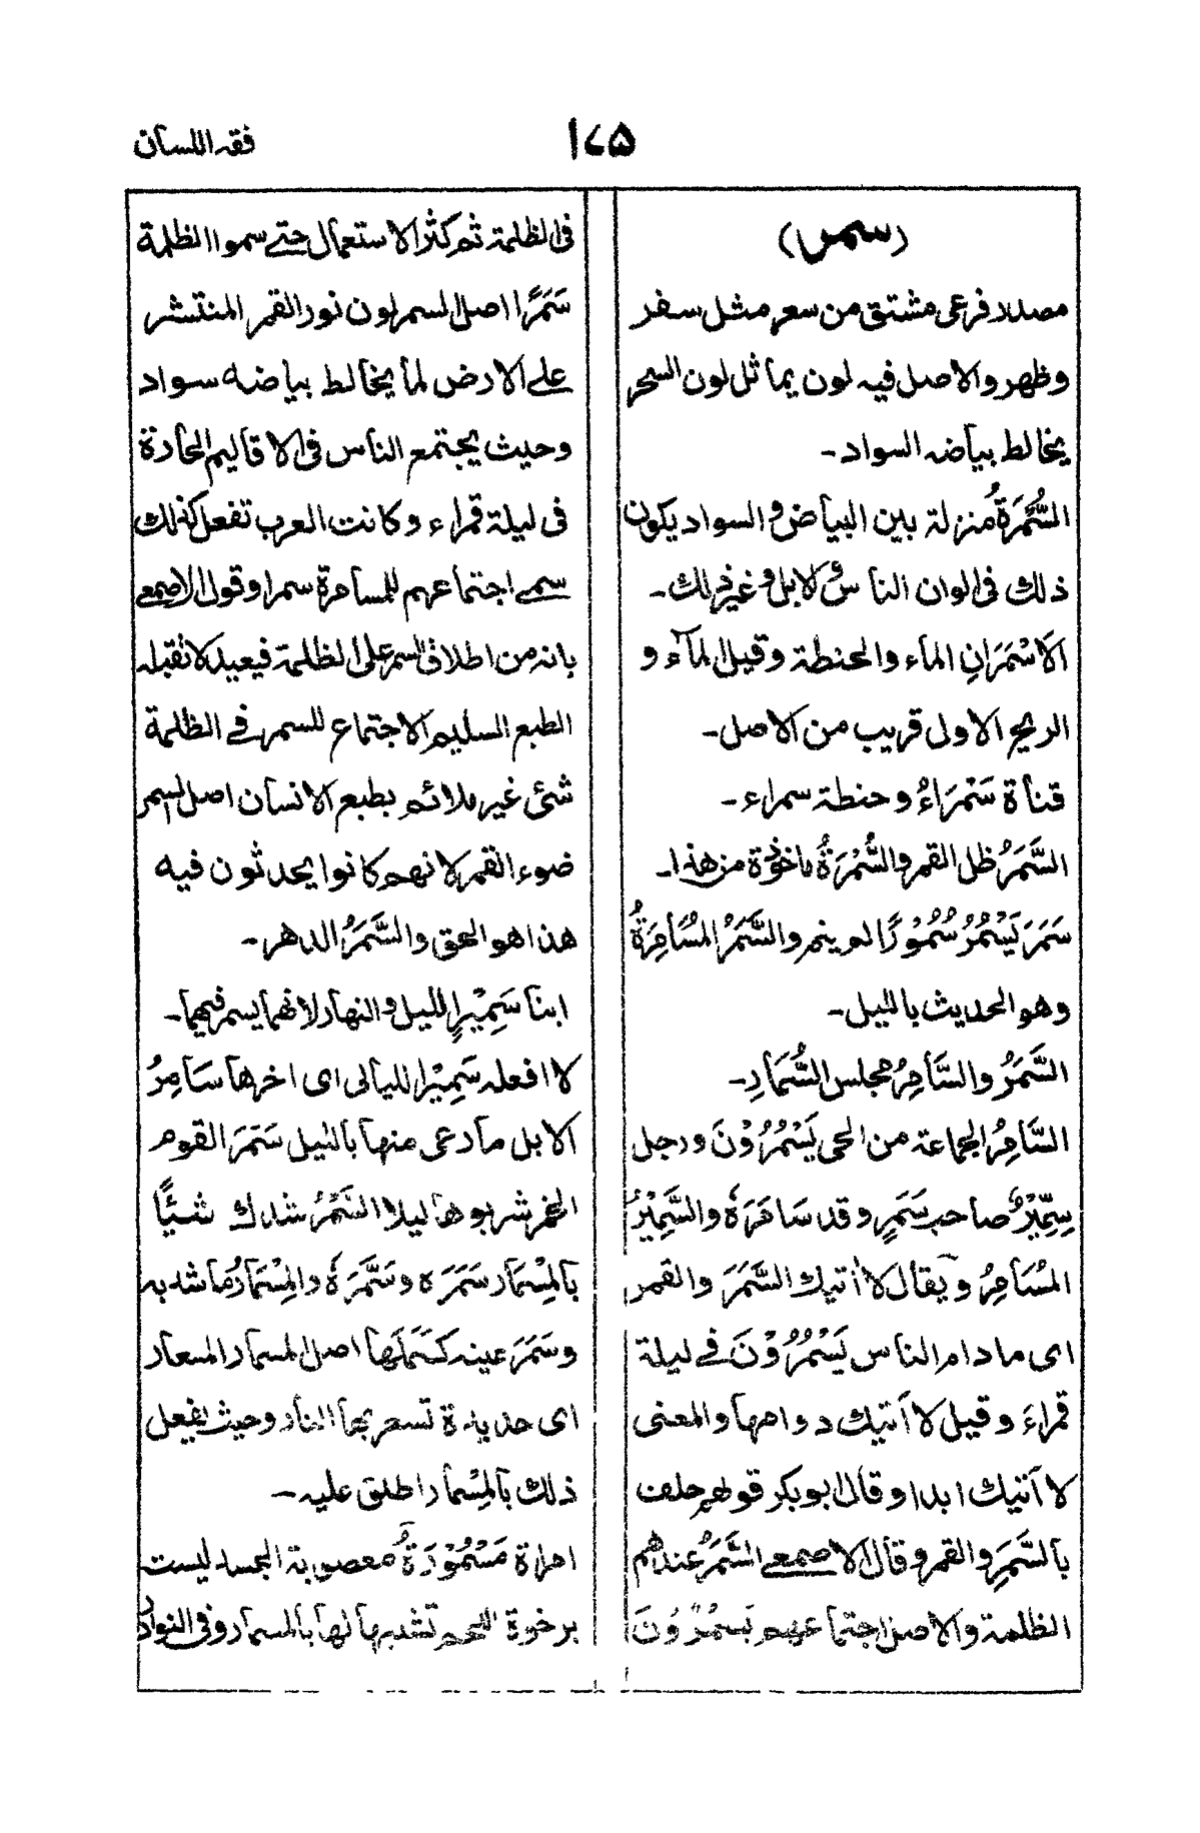 فقہ اللسان
١٧٥
(سمر)
مصدر فرعی مشتق من سعر مثل سفر
وظهر والاصل فیہ لون یماثل لون السحر
یخالط بیاضہ السواد۔
السُّمْرَةُ منزلة بین البیاض والسواد یکون
ذلك فی الوان الناس والابل وغیر ذلك۔
الاَسْمَرَانِ الماء والحنطة وقیل الماء و
الریح الاول قریب من الاصل۔
قناة سَمْرَاءُ وحنطة سمراء۔
السَّمَرُ ظل القمر والسُّمْرَةُ ماخوذة من هذا۔
سَمَرَ یَسْمُرُ سُمُوْرًا لم ینم والسَّمَرُ المُسَامَرَةُ
وهو الحدیث باللیل۔
السَّمَرُ والسَّامِرُ مجلس السُّمَّارِ۔
السَّامِرُ الجماعة من الحی یَسْمُرُوْنَ ورجل
سِمِّیْرٌ صاحب سَمَرٍ وقد سَامَرَهٗ والسَّمِیْرُ
المُسَامِرُ ویقال لا اٰتیك السَّمَرَ والقمر
ای مادام الناس یَسْمُرُوْنَ فے لیلة
قمراءَ وقیل لا اٰتیك دوامهما والمعنی
لا اٰتیك ابدا وقال ابوبکر قولهم حلف
بالسَّمَرِ والقمر وقال الاصمعے السَّمَرُ عندهم
الظلمة والاصل اجتماعهم یَسْمُرُوْنَ
فی الظلمة ثم کثر الاستعمال حتے سموا الظلمة
سَمَرًا اصل السمر لون نور القمر المنتشر
علے الارض لما یخالط بیاضه سواد
وحیث یجتمع الناس فی الاقالیم الحارة
فی لیلة قمراء وکانت العرب تفعل کذلك
سمے اجتماعهم للمسامرة سمرا وقول الاصمعے
بانہ من اطلاق السمر علی الظلمة فبعید لا تقبلہ
الطبع السلیم الاجتماع للسمر فے الظلمة
شئ غیر ملائم بطبع الانسان اصل السمر
ضوء القمر لانهم کانوا یحدثون فیه
هذا هو الحق والسَّمَرُ الدهر۔
ابنا سَمِیْرٍ اللیل والنهار لانهما یسمر فیهما۔
لا افعلہ سَمِیْرَ اللیالی ای اخرها سَامِرُ
الابل ما رعی منها باللیل سَمَرَ القوم
الخمر شربوها لیلا السَّمْرُ شدك شیْئًا
بالمِسْمَار سَمَرَه وسَمَّرَهٗ والمِسْمَارُ ما شد به
وسَمَرَ عینہ کَسَمَلَهَا اصل المسمار المسعار
ای حدیدة تسعر بها النار وحیث یفعل
ذلك بالمِسْمار اطلق علیہ۔
امراة مَسْمُوْرَةٌ معصوبة الجسد لیست
برخوة اللحم تشبیها لها بالمسمار وفی النوادر